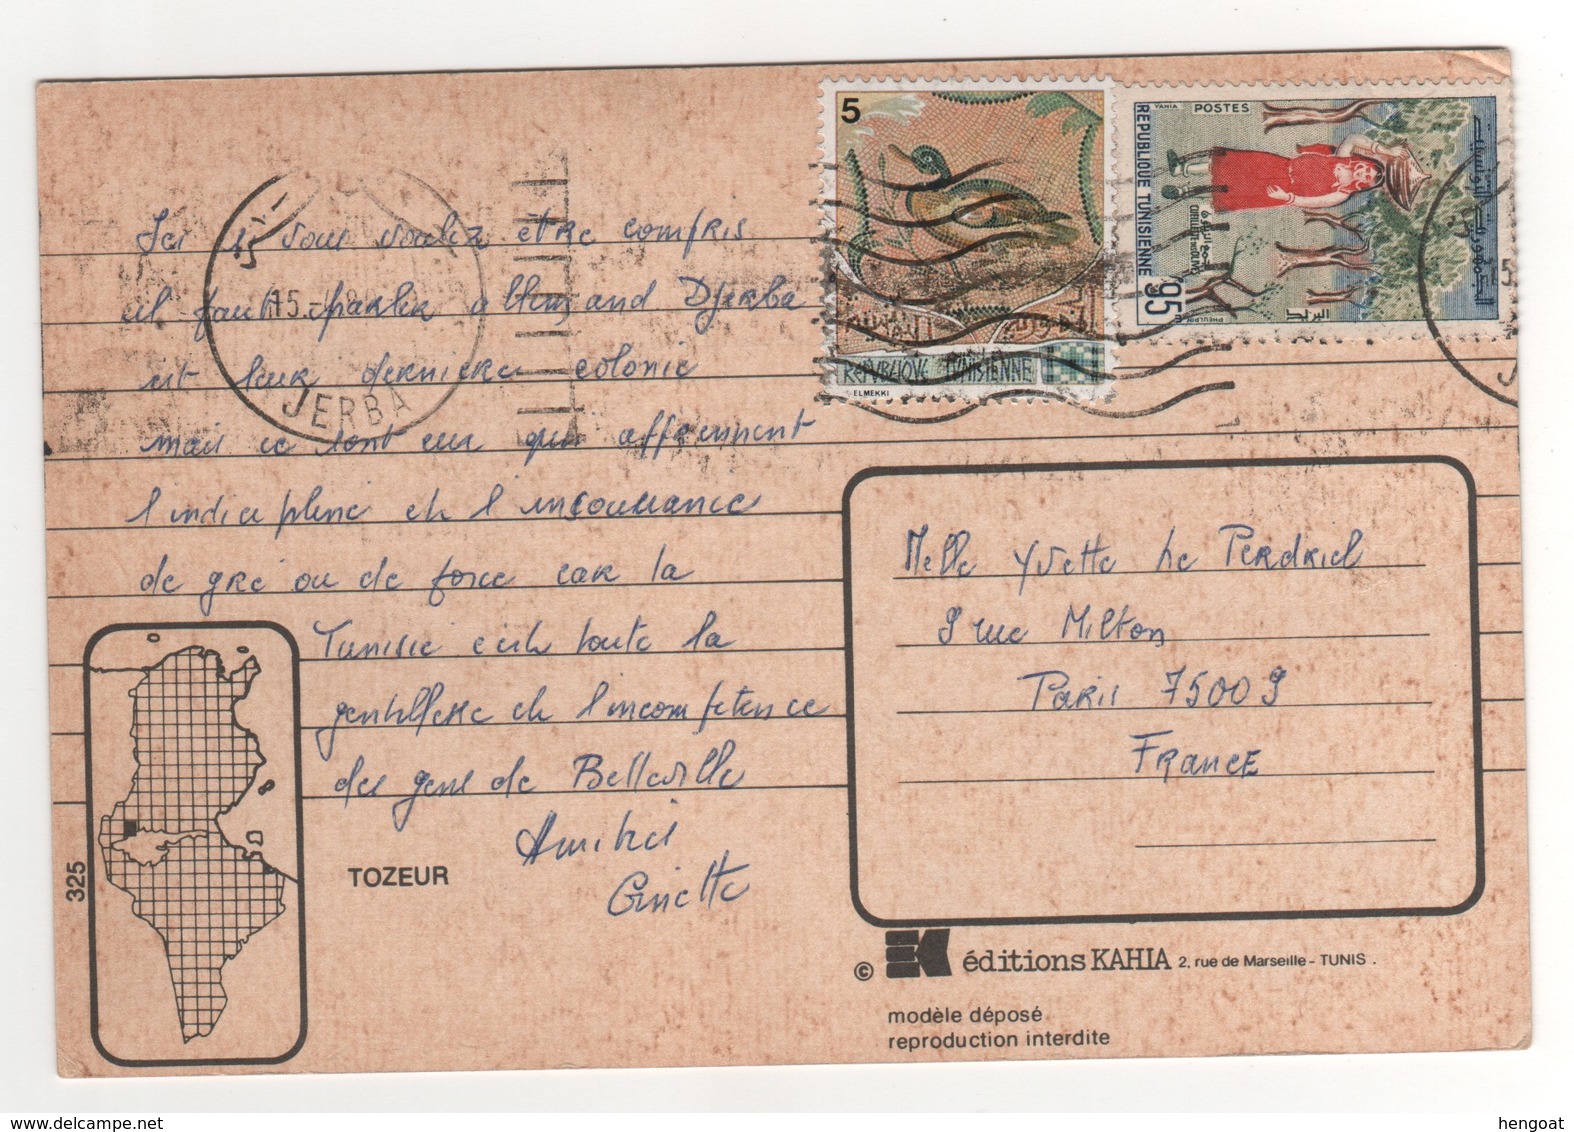 Ici si vous voulez être compris
il faut parler allemand Djerba
est leur dernière colonie
mais ce sont eux qui apprennent
l'indiscipline et l'insouciance
de gré ou de force car la
Tunisie c'est toute la
gentillesse et l'incompétence
des gens de Belleville
Amitiés
Ginette
TOZEUR
325
JERBA
5
REPUBLIQUE TUNISIENNE
ELMEKKI
YAHIA
POSTES
REPUBLIQUE TUNISIENNE
95m
الجمهورية التونسية
البريد
Melle Yvette Le Perdriel
9 rue Milton
Paris 75009
France
© éditions KAHIA 2, rue de Marseille - TUNIS .
modèle déposé
reproduction interdite
hengoat